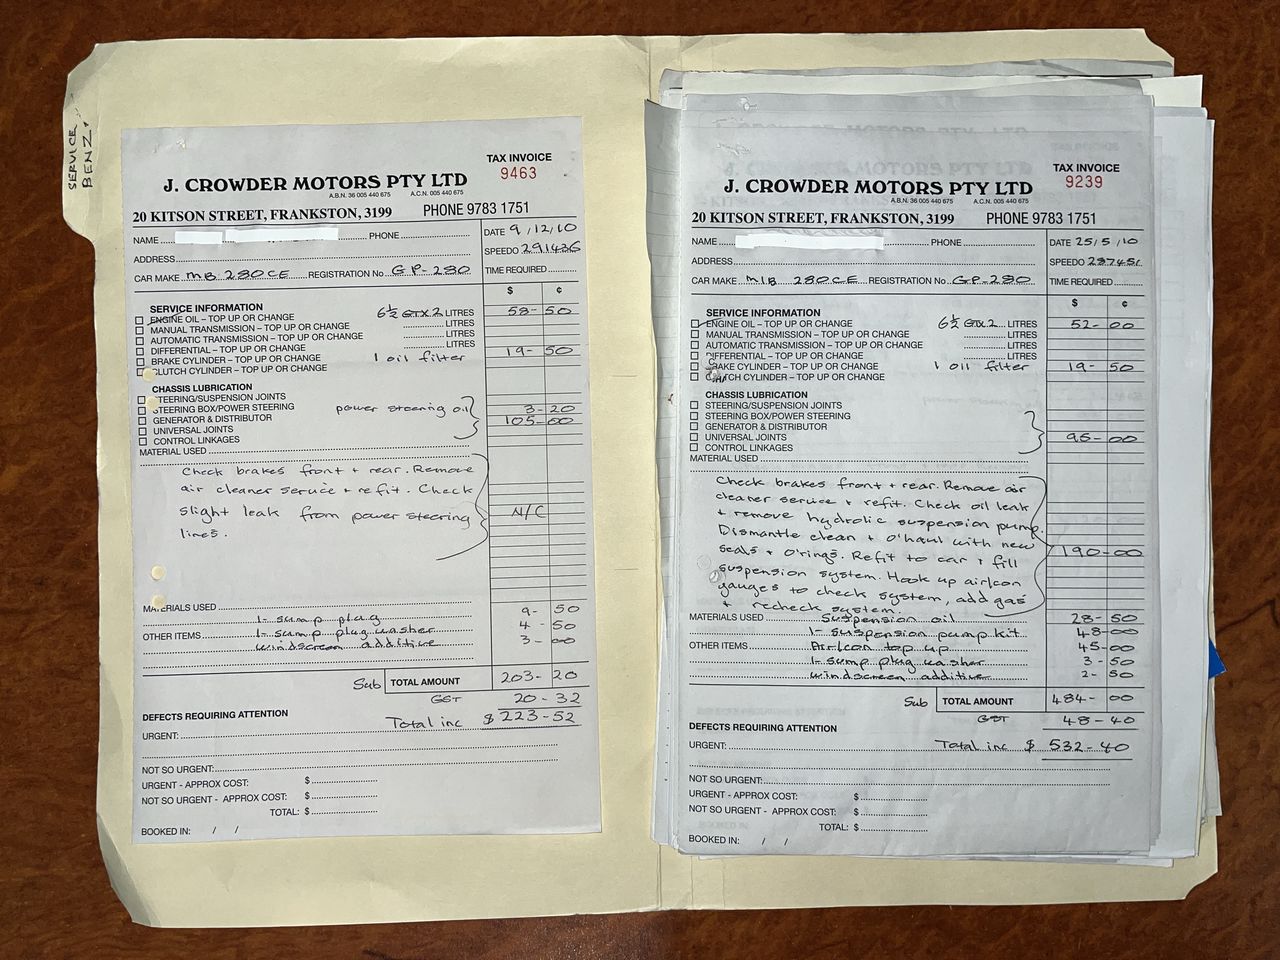 SERVICE
BENZ
TAX INVOICE
9463
J. CROWDER MOTORS PTY LTD
A.B.N. 36 005 440 675 A.C.N. 005 440 675
20 KITSON STREET, FRANKSTON, 3199 PHONE 9783 1751
NAME PHONE DATE 9/12/10
ADDRESS SPEEDO 291436
CAR MAKE MB 280CE REGISTRATION No GP-280 TIME REQUIRED
$ ¢
SERVICE INFORMATION
ENGINE OIL – TOP UP OR CHANGE 6½ GTX.2 LITRES 58-50
MANUAL TRANSMISSION – TOP UP OR CHANGE LITRES
AUTOMATIC TRANSMISSION – TOP UP OR CHANGE LITRES
DIFFERENTIAL – TOP UP OR CHANGE LITRES
BRAKE CYLINDER – TOP UP OR CHANGE 1 oil filter 19-50
CLUTCH CYLINDER – TOP UP OR CHANGE
CHASSIS LUBRICATION
STEERING/SUSPENSION JOINTS
STEERING BOX/POWER STEERING power steering oil 3-20
GENERATOR & DISTRIBUTOR 105-00
UNIVERSAL JOINTS
CONTROL LINKAGES
MATERIAL USED
Check brakes front + rear. Remove
air cleaner service + refit. Check
slight leak from power steering N/C
lines.
MATERIALS USED 9-50
1- sump plug
OTHER ITEMS 1- sump plug washer 4-50
windscreen additive 3-00
Sub TOTAL AMOUNT 203-20
GST 20-32
DEFECTS REQUIRING ATTENTION Total inc $ 223-52
URGENT:
NOT SO URGENT:
URGENT - APPROX COST: $
NOT SO URGENT - APPROX COST: $
TOTAL: $
BOOKED IN: / /
TAX INVOICE
9239
J. CROWDER MOTORS PTY LTD
A.B.N. 36 005 440 675 A.C.N. 005 440 675
20 KITSON STREET, FRANKSTON, 3199 PHONE 9783 1751
NAME PHONE DATE 25/5/10
ADDRESS SPEEDO
CAR MAKE M/B 280CE REGISTRATION No GP-280 TIME REQUIRED
$ ¢
SERVICE INFORMATION
ENGINE OIL – TOP UP OR CHANGE 6½ GTX2 LITRES 52-00
MANUAL TRANSMISSION – TOP UP OR CHANGE LITRES
AUTOMATIC TRANSMISSION – TOP UP OR CHANGE LITRES
DIFFERENTIAL – TOP UP OR CHANGE LITRES
BRAKE CYLINDER – TOP UP OR CHANGE 1 oil filter 19-50
CLUTCH CYLINDER – TOP UP OR CHANGE
CHASSIS LUBRICATION
STEERING/SUSPENSION JOINTS
STEERING BOX/POWER STEERING
GENERATOR & DISTRIBUTOR
UNIVERSAL JOINTS 95-00
CONTROL LINKAGES
MATERIAL USED
Check brakes front + rear. Remove air
cleaner service + refit. Check oil leak
+ remove hydrolic suspension pump.
Dismantle clean + o'haul with new
seals + o'rings. Refit to car + fill 190-00
suspension system. Hook up air/con
gauges to check system, add gas
+ recheck system.
MATERIALS USED Suspension oil 28-50
1- suspension pump kit 48-00
OTHER ITEMS Air/con top up 45-00
1- sump plug washer 3-50
windscreen additive 2-50
Sub TOTAL AMOUNT 484-00
GST 48-40
DEFECTS REQUIRING ATTENTION
URGENT: Total inc $ 532-40
NOT SO URGENT:
URGENT - APPROX COST: $
NOT SO URGENT - APPROX COST: $
TOTAL: $
BOOKED IN: / /